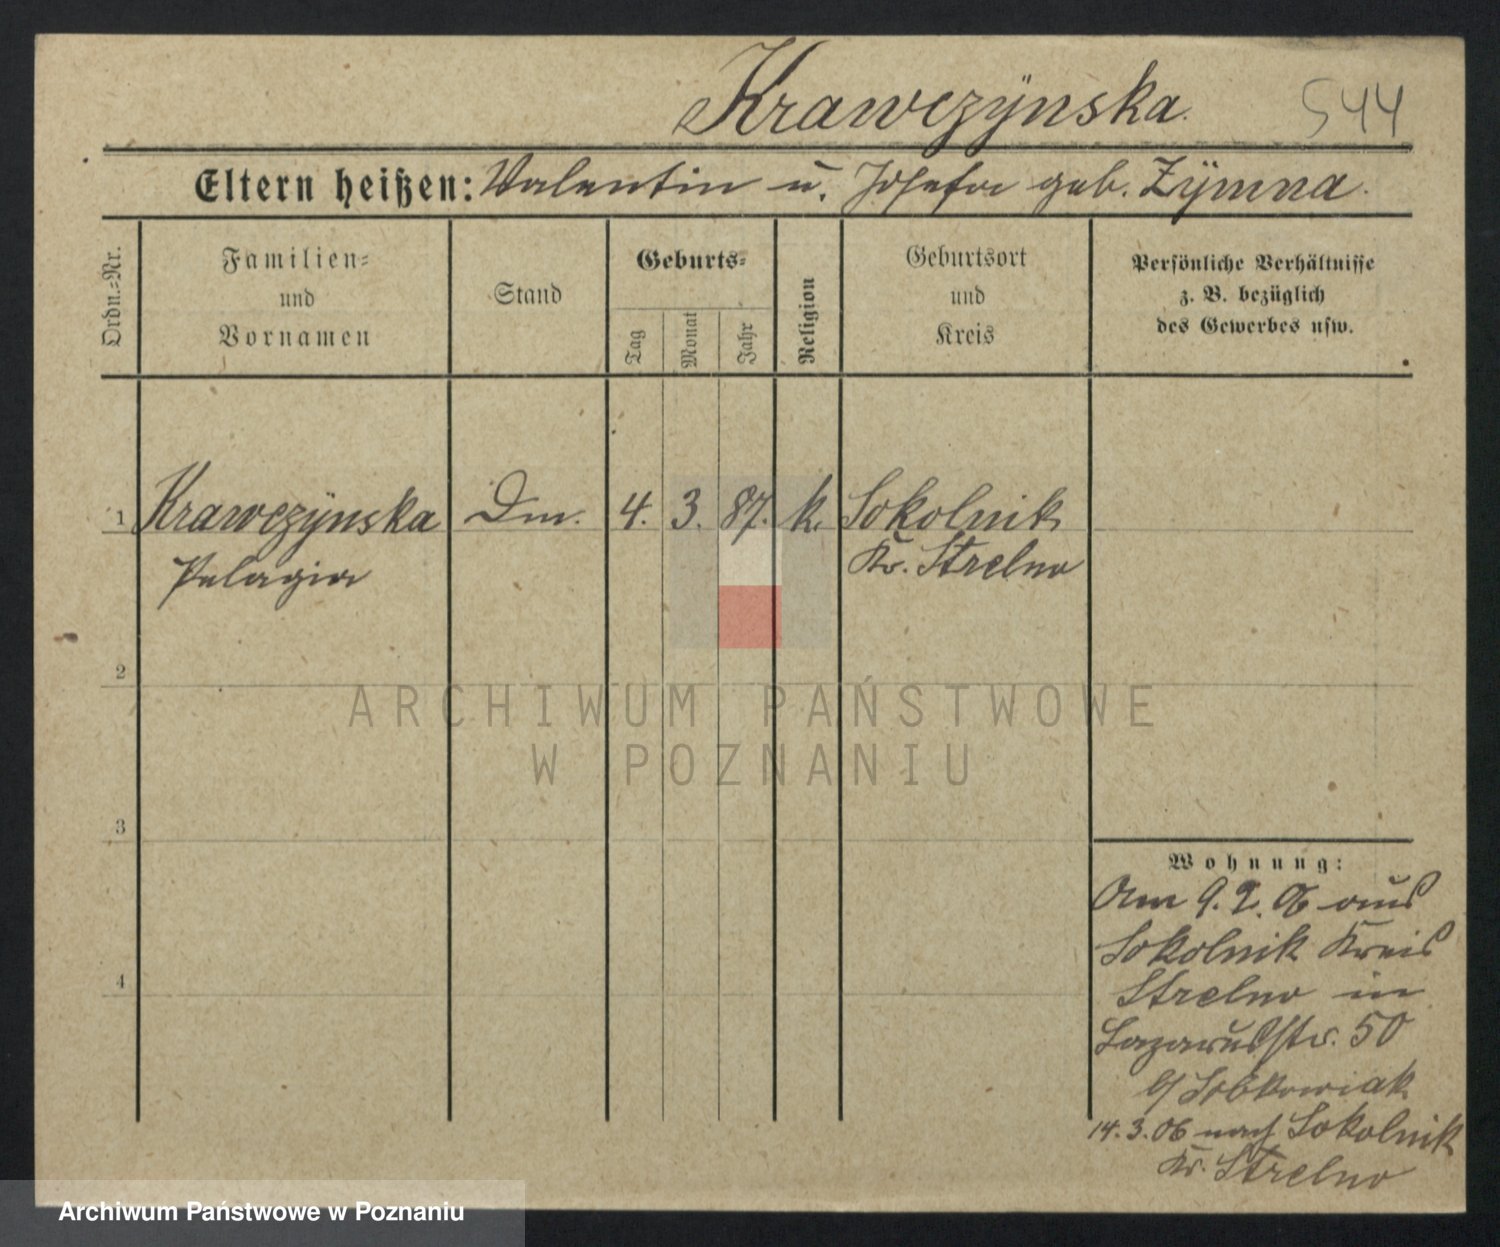 Krawczÿnska.
544
Eltern heißen: Valentin u. Josefa geb. Zÿmna.
Ordn.-Nr.
Familien-
und
Vornamen
Stand
Geburts-
Tag
Monat
Jahr
Religion
Geburtsort
und
Kreis
Persönliche Verhältnisse
z. B. bezüglich
des Gewerbes usw.
1 Krawczÿnska Dm. 4. 3. 87. k. Sokolnik
Pelagia Kr. Strelno
2
3
4
Wohnung:
Am 9. 2. 06 aus
Sokolnik Kreis
Strelno in
Lazarusstr. 50
b/ Sobkowiak
14. 3. 06 nach Sokolnik
Kr. Strelno
ARCHIWUM PAŃSTWOWE
W POZNANIU
Archiwum Państwowe w Poznaniu